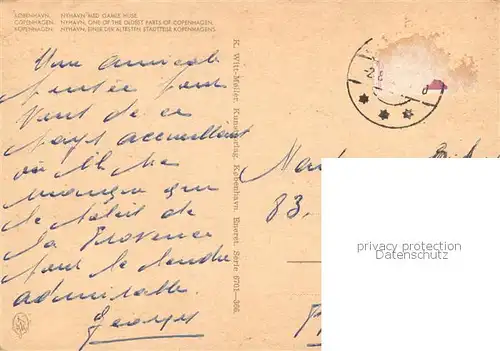 KØBENHAVN. NYHAVN MED GAMLE HUSE.
COPENHAGEN. NYHAVN, ONE OF THE OLDEST PARTS OF COPENHAGEN.
KOPENHAGEN. NYHAVN, EINER DER ÄLTESTEN STADTTEILE KOPENHAGENS
Une amicale
pensée pour
vous de ce
pays accueillant
où il ne
manque que
le soleil de
la Provence
pour le rendre
admirable.
Georges
K. Witt-Møller. Kunstforlag. København. Eneret. Serie 6701-366.
83.
privacy protection